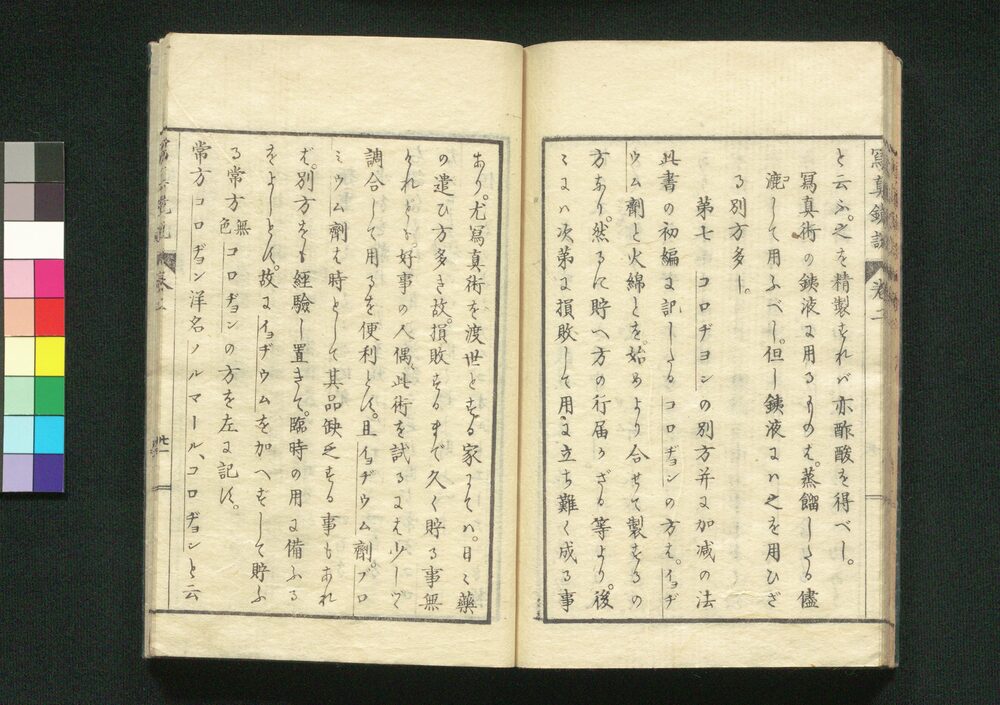 寫真鏡說 卷二
と云ふ。之を精製すれバ亦酢酸を得べし。
寫真術の鐵液に用るものは。蒸餾したる儘
漉して用ふべし。但し鐵液にハ之を用ひざ
る別方多し。
第七 コロヂヨンの別方并に加減の法
此書の初編に記したるコロヂョンの方は。イョヂ
ウム劑と火綿とを。始めより合せて製するの
方あり。然るに貯へ方の行届かざる等より。後
ミにハ次第に損敗して用に立ち難く成る事
あり。尤寫真術を渡世とする家にてハ。日〻藥
の遣ひ方多き故。損敗するまで久く貯る事無
けれども。好事の人偶〻此術を試るには少しづゝ
調合して用るを便利とす。且イョヂウム劑。ブロ
ミウム劑は時として其品缺乏する事もあれ
ば。別方をも經驗し置きて。臨時の用に備ふる
をよしとす。故にイョヂウムを加へずして貯ふ
る常方無色コロヂョンの方を左に記す。
常方コロヂョン洋名ノルマール、コロヂョンと云